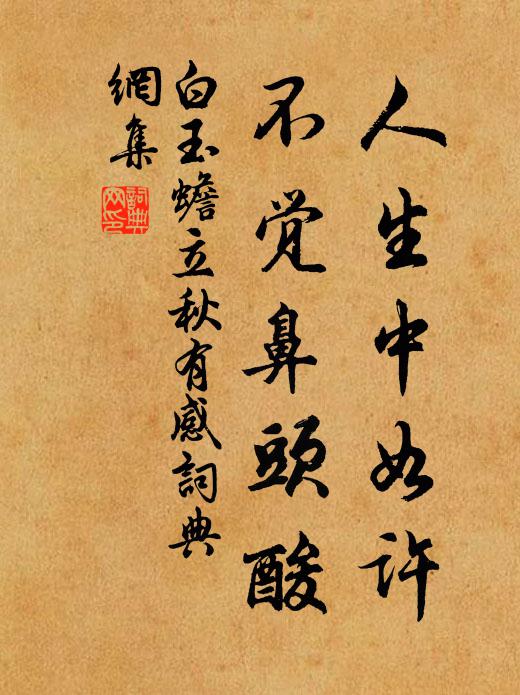 人生中如许
不觉鼻頭酸
白玉蟾立秋有感詞典
網集
詞典
网印